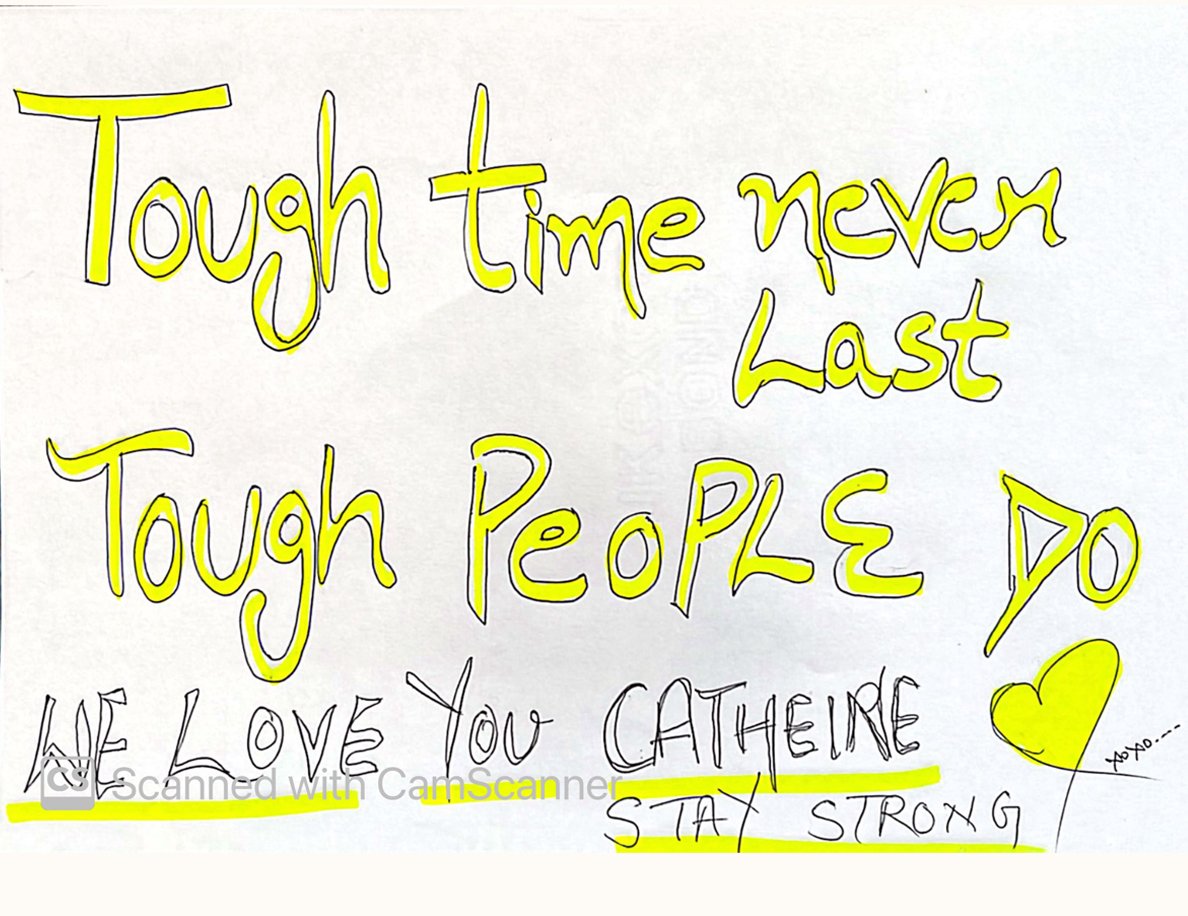 Tough time never
Last
Tough PEOPLE DO
WE LOVE YOU CATHEINE
xoxo...
CS Scanned with CamScanner
STAY STRONG